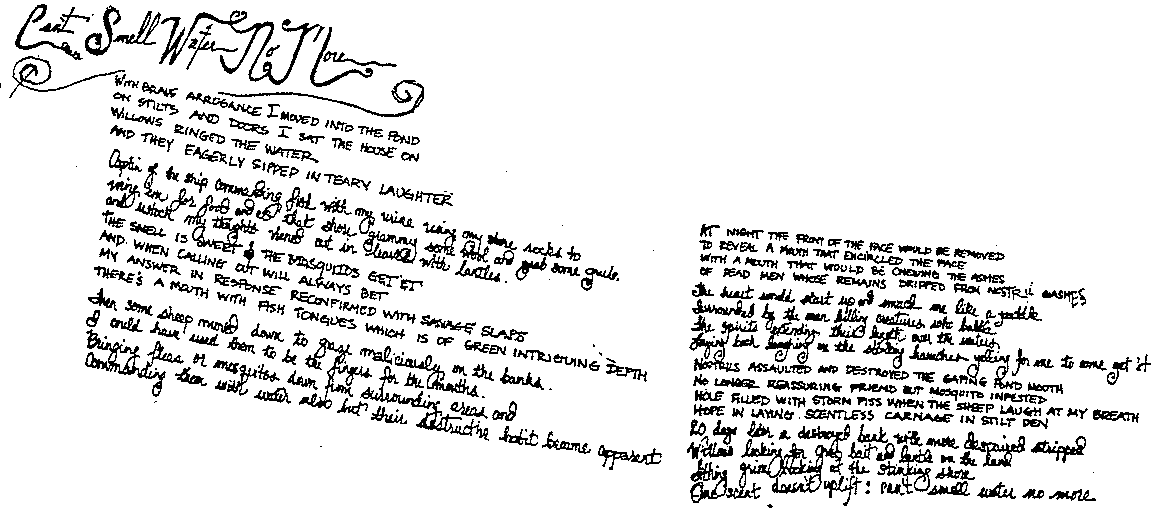 Can't Smell Water No More
WITH BRAVE ARROGANCE I MOVED INTO THE POND
ON STILTS AND DOORS I SAT THE HOUSE ON
WILLOWS RINGED THE WATER
AND THEY EAGERLY SIPPED IN TEARY LAUGHTER
Captin of the ship commanding fish with my wine using my shore socks to
mine 'em for food and at that shore grammy some wool and grab some
and my thoughts hered out in with
THE SMELL IS SWEET & THE MOSQUITOS GET IT
AND WHEN CALLING OUT WILL ALWAYS BET
MY ANSWER IN RESPONSE RECONFIRMED WITH SAVAGE SLAPS
THERE'S A MOUTH WITH FISH TONGUES WHICH IS OF GREEN INTRIGUING DEPTH
then some sheep moved down to graze maliciously on the banks.
I could have used them to be the fingers for the mouths.
Bringing fleas or mosquitos down from surrounding areas and
Commanding them with water also but their destructive habit became apparent
AT NIGHT THE FRONT OF THE FACE WOULD BE REMOVED
TO REVEAL A MOUTH THAT ENCIRCLED THE FACE
WITH A MOUTH THAT WOULD BE CHEWING THE ASHES
OF DEAD MEN WHOSE REMAINS DRIPPED FROM NOSTRIL GASHES
the heart would start up and smack me like a paddle
Surrounded by the man killing creatures who
the spirits extending their depth over the waters
laying back laughing on the stinking haunches yelling for me to come get it
NOSTRILS ASSAULTED AND DESTROYED THE GAPING POND MOUTH
NO LONGER REASSURING FRIEND BUT MOSQUITO INFESTED
HOLE FILLED WITH STORM PISS WHEN THE SHEEP LAUGH AT MY BREATH
HOPE IN LAYING SCENTLESS CARNAGE IN STILT DEN
20 days later a destroyed bank with more despaired stripped
Willows looking for bait and on the land
sitting looking at the stinking shore
One scent doesn't uplift: can't smell water no more